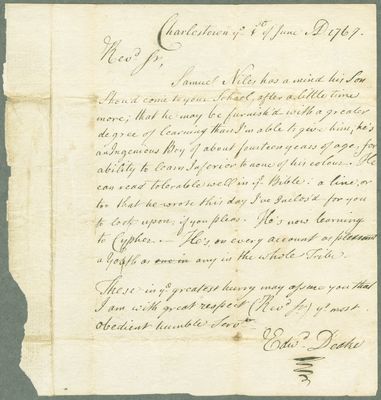 Charlestown yͤ 8ͭͦ of June AD 1767.
Revᵈ Sʳ,
Samuel Niles has a mind his Son
Shou'd come to your School, after a little time
more; that he may be furnish'd with a greater
degree of learning than I'm able to give him; he's
an Ingenious Boy of about fourteen years of age, for
ability to learn Inferior to none of his colour. He
can read tolerable well in yͤ Bible. a line, or
two that he wrote this day I've Inclos'd for you
to look upon, if you pleas. He's now learning
to Cypher.— He's on every account as pleasant
a Youth as one in any in the whole Tribe.
These in yͤ greatest hurry may assure you that
I am with great respect (Revᵈ Sʳ) yͤ most
obedient humble Servᵗ
Edwᵈ Deake